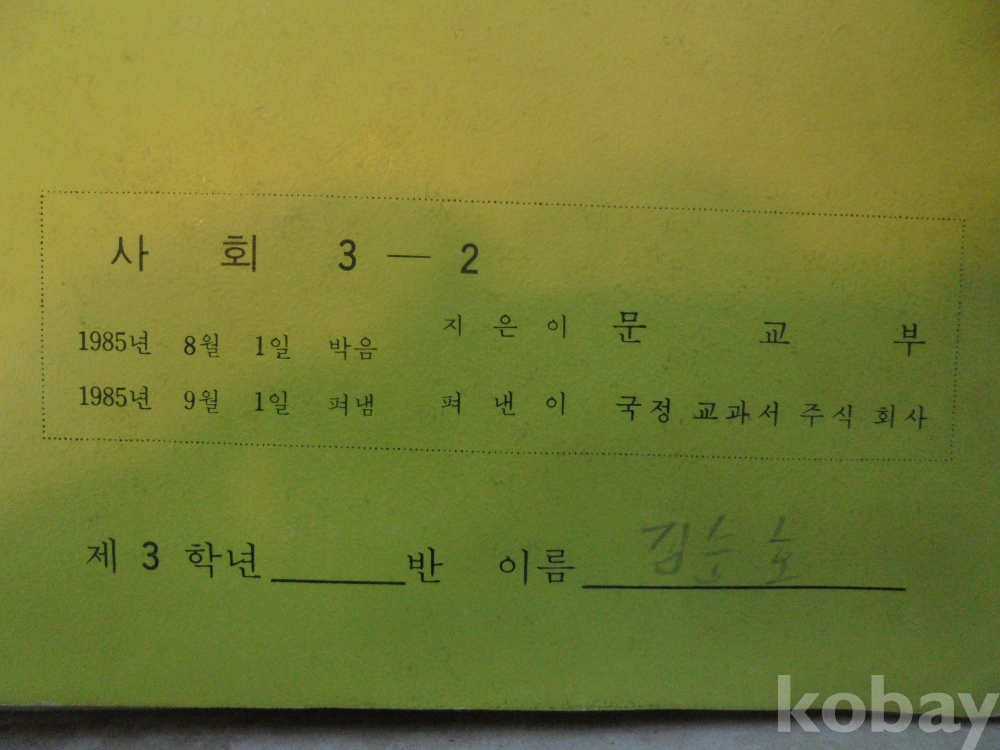 사 회 3 — 2
1985년 8월 1일 박음 지 은 이 문 교 부
1985년 9월 1일 펴냄 펴 낸 이 국정 교과서 주식 회사
제 3 학년 반 이름 김순호
kobay